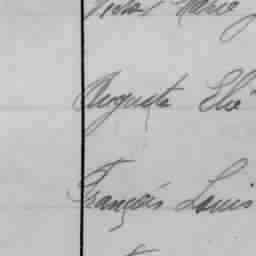 Victor Marie
Auguste Elie
François Louis